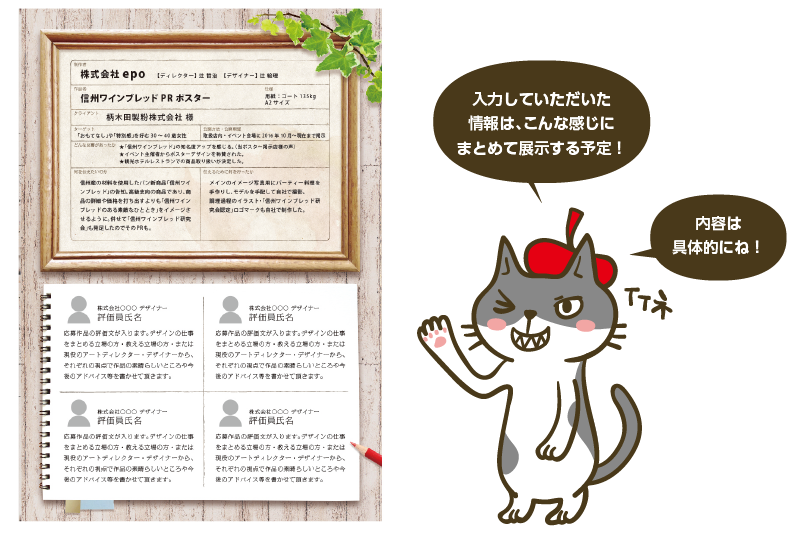 制作者
株式会社 epo 【ディレクター】辻 哲治 【デザイナー】辻 綾穂
作品名
信州ワインブレッド PR ポスター
仕様
用紙：コート 135kg
A2 サイズ
クライアント
柄木田製粉株式会社 様
ターゲット
「おもてなし」や「特別感」を好む 30 〜 40 歳女性
取扱店内・イベント会場に 2016 年 10 月〜現在まで掲示
どんな効果があったか
★「信州ワインブレッド」の知名度アップを感じる。(当ポスター掲示店様の声)
★イベント主催者からポスターデザインを称賛された。
★観光ホテルレストランでの商品取り扱いが決定した。
何を伝えたいのか
信州産の材料を使用したパン新商品「信州ワイ
ンブレッド」の告知。高級志向の商品であり、商
品の詳細や価格を打ち出すよりも「信州ワイン
ブレッドのある素敵なひととき」をイメージさ
せるように。併せて「信州ワインブレッド研究
会」も発足したのでそのPRも。
伝えるために何を行ったか
メインのイメージ写真用にパーティー料理を
手作りし、モデルを手配して自社で撮影。
調理過程のイラスト・「信州ワインブレッド研
究会認定」ロゴマークも自社で制作した。
株式会社〇〇〇 デザイナー
評価員氏名
応募作品の評価文が入ります。デザインの仕事
をまとめる立場の方・教える立場の方・または
現役のアートディレクター・デザイナーから、
それぞれの視点で作品の素晴らしいところや今
後のアドバイス等を書かせて頂きます。
株式会社〇〇〇 デザイナー
評価員氏名
応募作品の評価文が入ります。デザインの仕事
をまとめる立場の方・教える立場の方・または
現役のアートディレクター・デザイナーから、
それぞれの視点で作品の素晴らしいところや今
後のアドバイス等を書かせて頂きます。
株式会社〇〇〇 デザイナー
評価員氏名
応募作品の評価文が入ります。デザインの仕事
をまとめる立場の方・教える立場の方・または
現役のアートディレクター・デザイナーから、
それぞれの視点で作品の素晴らしいところや今
後のアドバイス等を書かせて頂きます。
株式会社〇〇〇 デザイナー
評価員氏名
応募作品の評価文が入ります。デザインの仕事
をまとめる立場の方・教える立場の方・または
現役のアートディレクター・デザイナーから、
それぞれの視点で作品の素晴らしいところや今
後のアドバイス等を書かせて頂きます。
入力していただいた
情報は、こんな感じに
まとめて展示する予定！
内容は
具体的にね！
イイネ